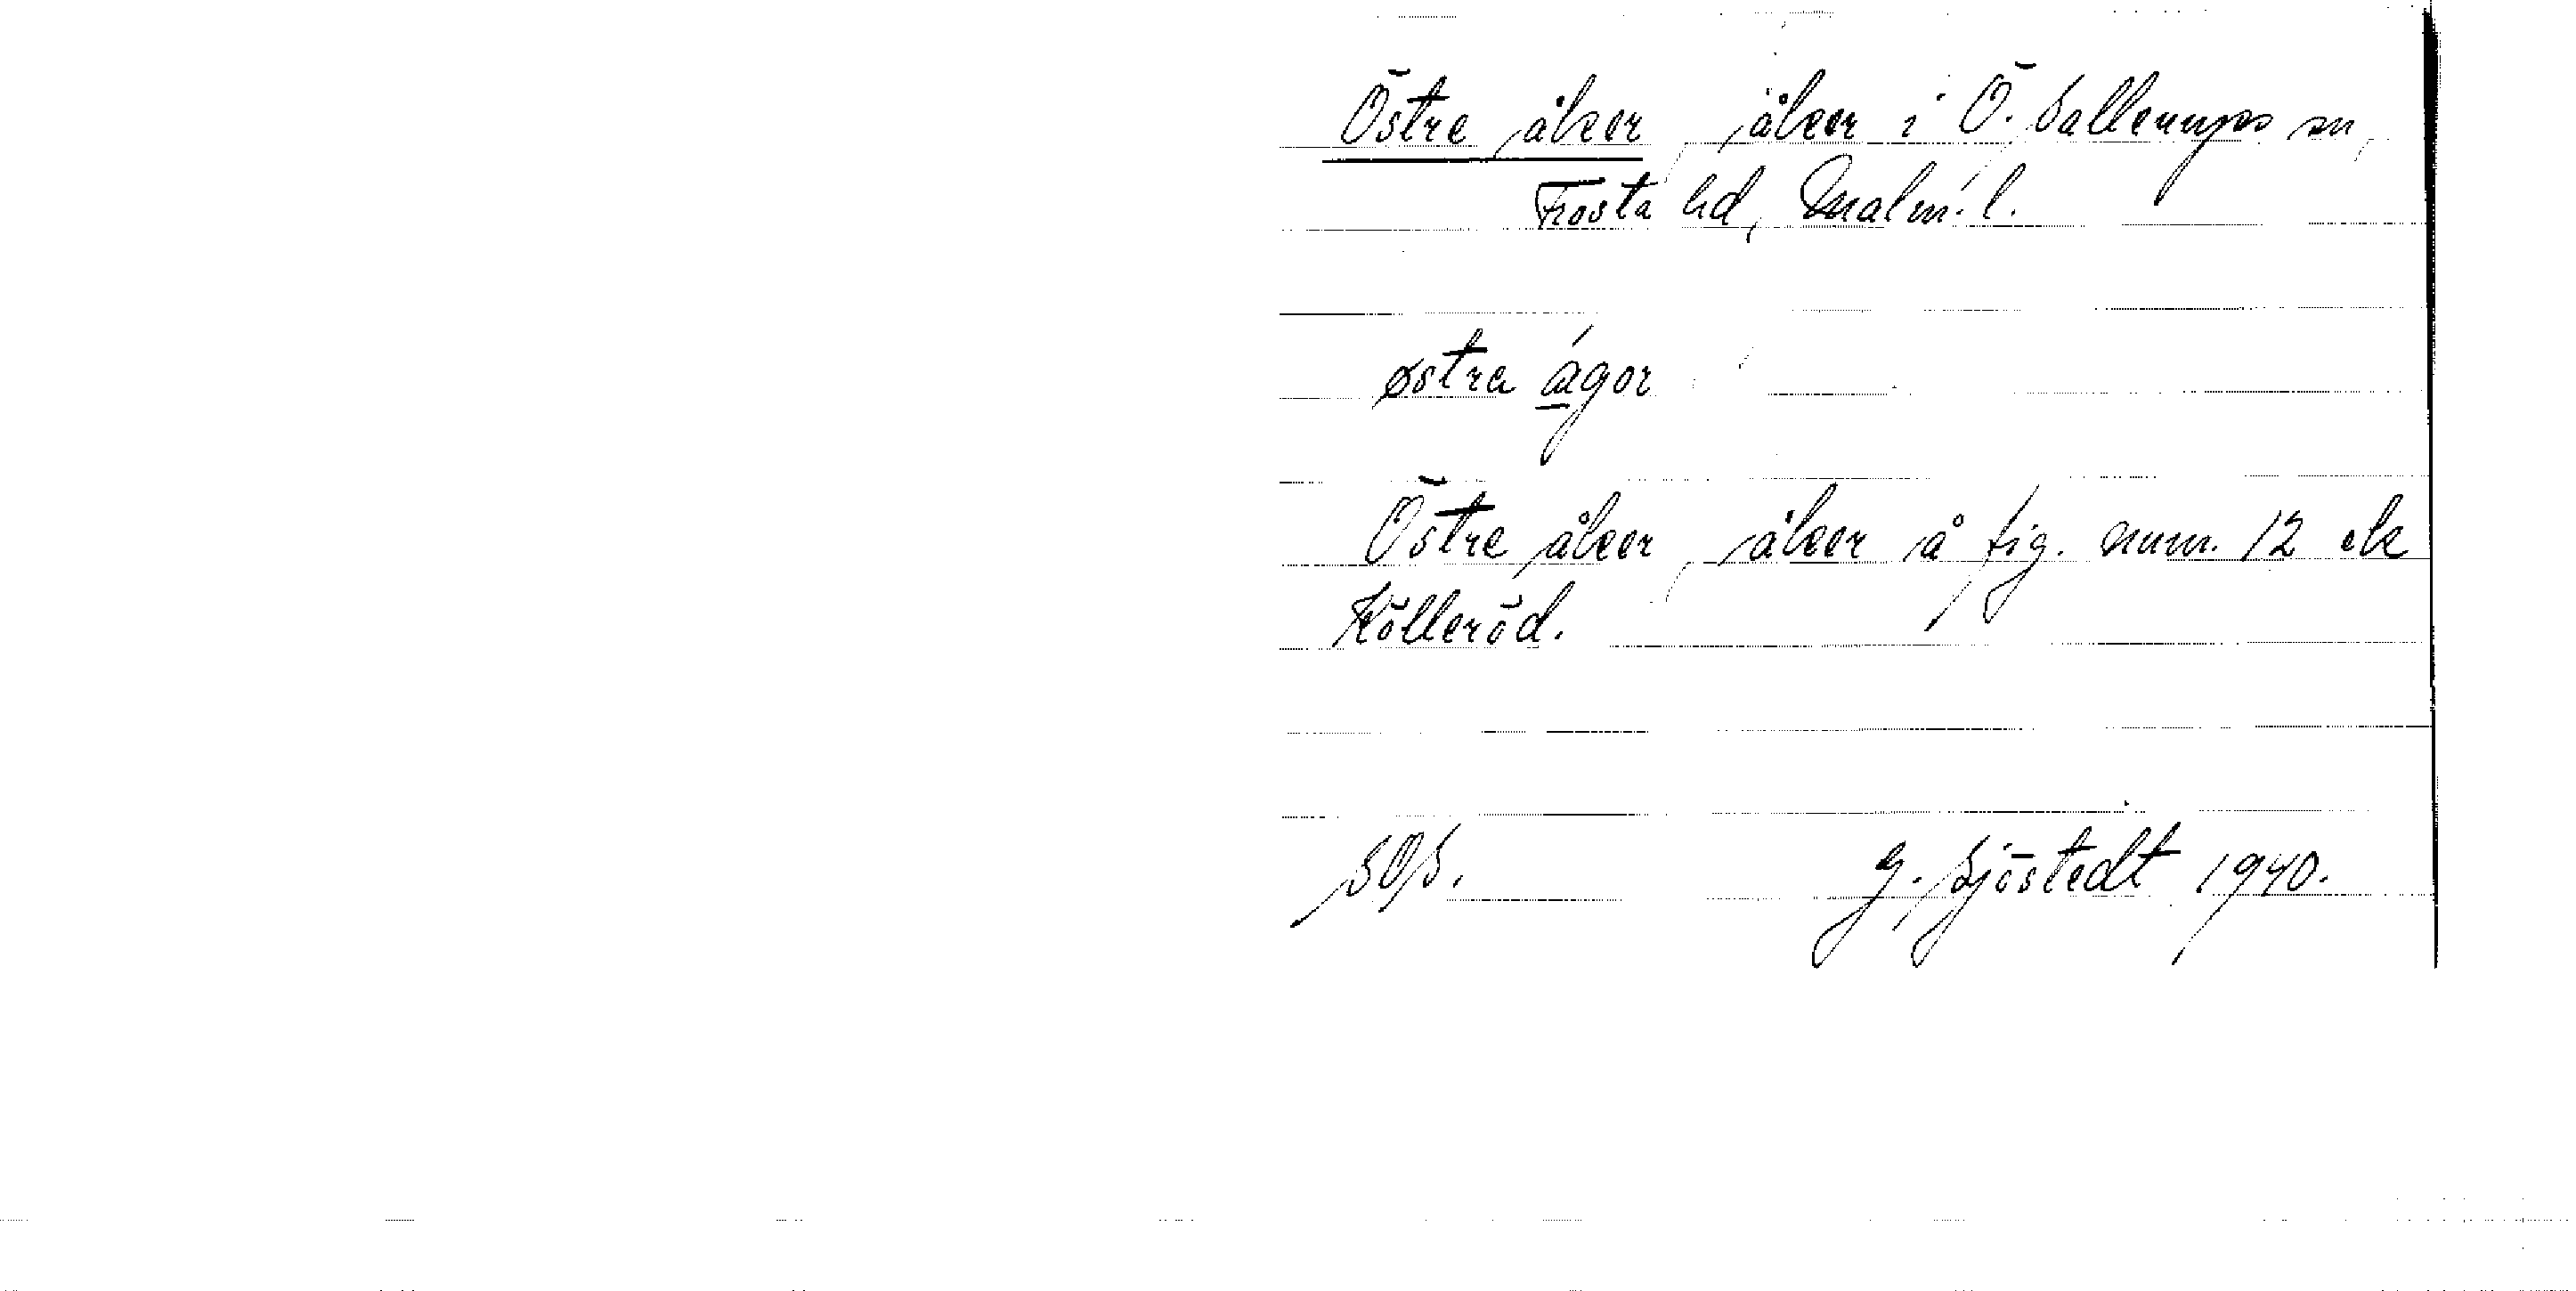 Östre åker, åker i Ö. Sallerups sn,
Frosta hd, Malm. l.
østra ágor
Östre åker, åker å fig. num. 12
Kölleröd.
SOS. G. Sjöstedt 1940.